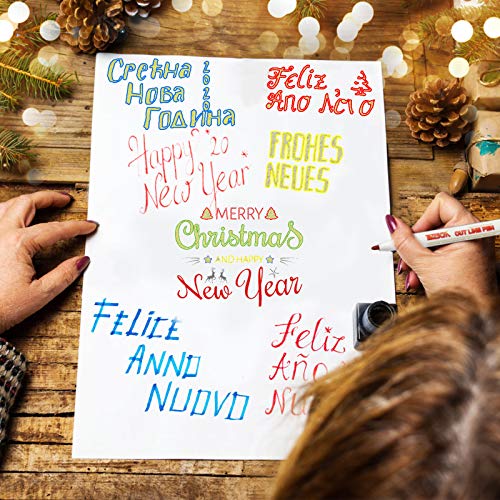 Срећна
Нова
Година
2020
Feliz
Ano Novo
Happy 20
New Year
FROHES
NEUES
MERRY
Christmas
AND HAPPY
New Year
FELICE
ANNO
NUOVO
Feliz
Año
OUT LINE PEN